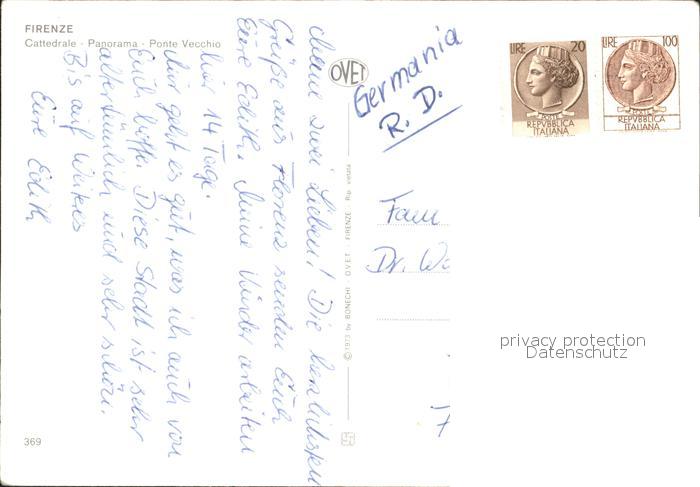 FIRENZE
Cattedrale - Panorama - Ponte Vecchio
Meine zwei Lieben! Die herzlichsten
Grüße aus Florenz senden Euch
Eure Edith. Meine Kinder arbeiten
hier 14 Tage.
Mir geht es gut, was ich auch von
Euch hoffe. Diese Stadt ist sehr
altertümlich und sehr schön.
Bis auf Weiteres
Eure Edith
369
OVET
© 1973 by BONECHI · OVET · FIRENZE · Rip. vietata
Germania
R. D.
LIRE 20
POSTE
REPVBBLICA
ITALIANA
LIRE 100
POSTE
REPVBBLICA
ITALIANA
Fam
Dr. Wo
privacy protection
Datenschutz